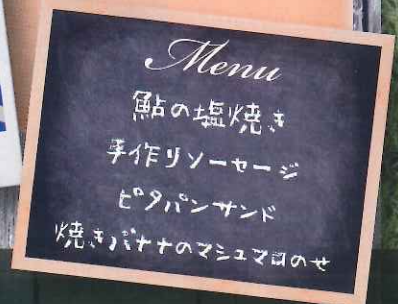 Menu
鮎の塩焼き
手作りソーセージ
ピタパンサンド
焼きバナナのマシュマロのせ